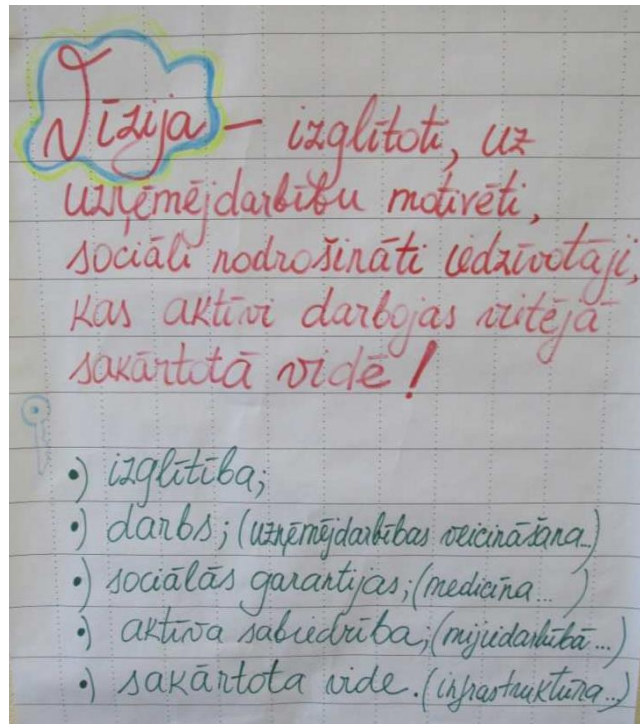 Vīzija – izglītoti, uz
uzņēmējdarbību motivēti,
sociāli nodrošināti iedzīvotāji,
kas aktīvi darbojas
sakārtotā vidē!
•) izglītība;
•) darbs; (uzņēmējdarbības veicināšana..)
•) sociālās garantijas; (medicīna...)
•) aktīva sabiedrība; (mijiedarbībā...)
•) sakārtota vide. (infrastruktūra...)